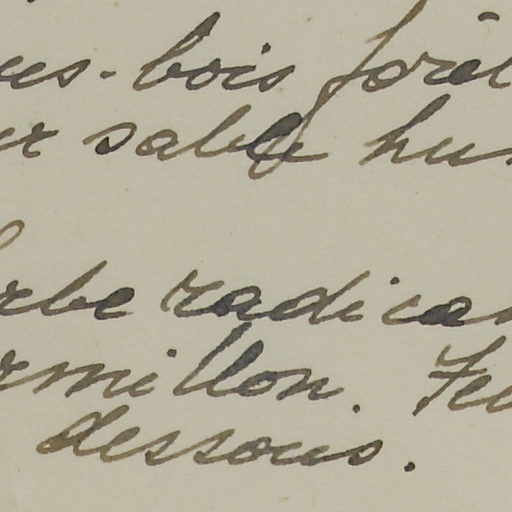 us-bois forêt
sable hu
rbe radica
rmillon. Feu
dessous.